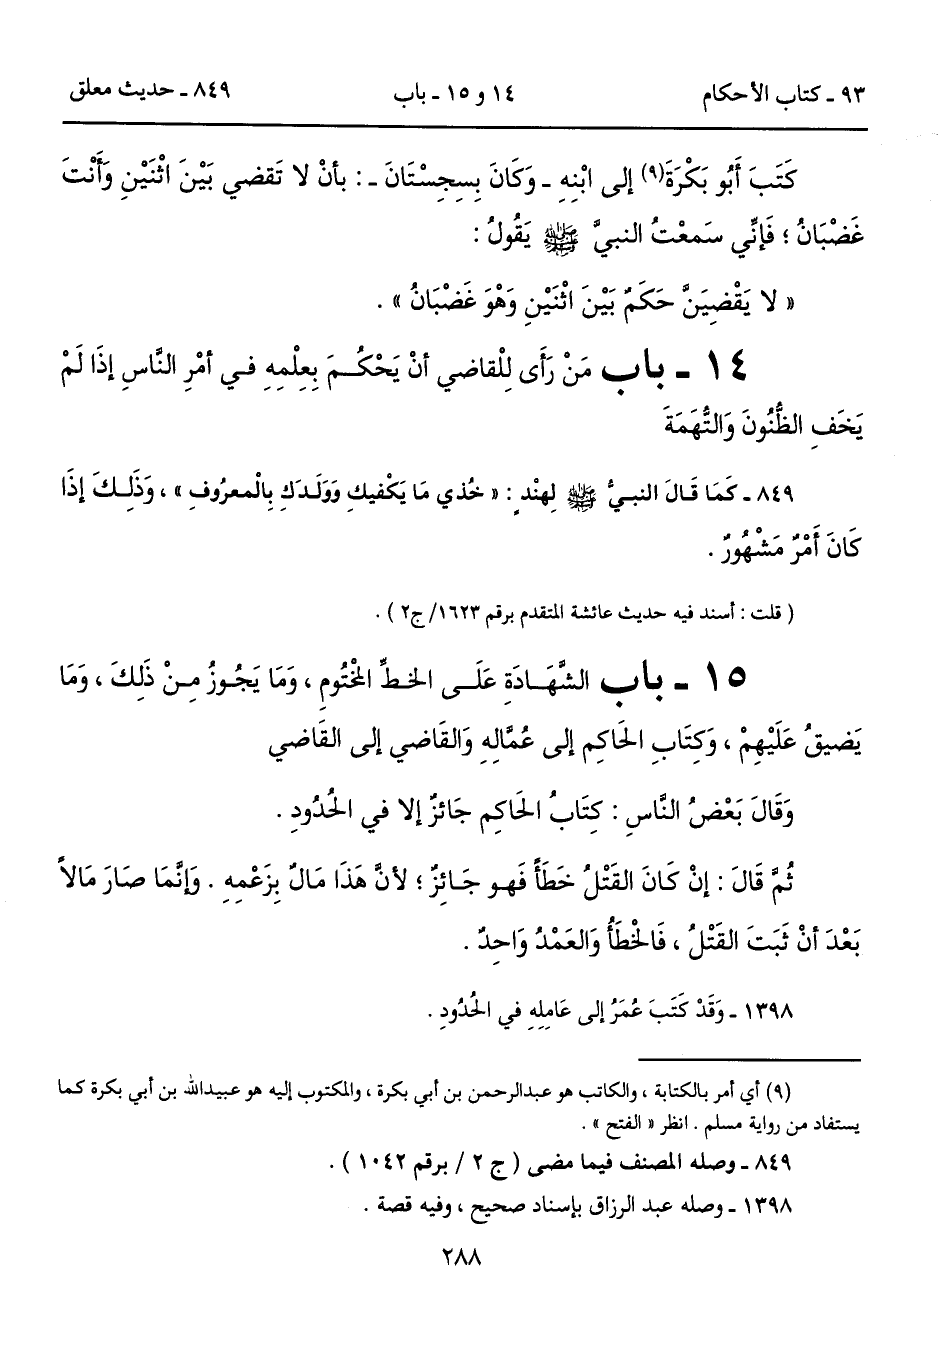 ٩٣ ـ كتاب الأحكام ١٤ و ١٥ ـ باب ٨٤٩ ـ حديث معلق
كَتَبَ أَبُو بَكْرَةَ(٩) إلى ابْنِهِ ـ وَكَانَ بِسِجِسْتَانَ ـ : بأنْ لا تَقضي بَيْنَ اثْنَيْنِ وَأَنْتَ
غَضْبَانُ ؛ فَإنِّي سَمعْتُ النبيَّ ﷺ يَقُولُ :
« لا يَقْضِيَنَّ حَكَمٌ بَيْنَ اثْنَيْنِ وَهْوَ غَضْبَانُ » .
١٤ ـ باب مَنْ رَأَى لِلْقاضي أنْ يَحْكُمَ بِعِلْمِهِ في أمْرِ النَّاسِ إذَا لَمْ
يَخَفِ الظُّنُونَ وَالتُّهَمَةَ
٨٤٩ ـ كَمَا قَالَ النبيُّ ﷺ لِهِنْدٍ : « خُذي مَا يَكْفيكِ وَوَلَدَكِ بِالْمعرُوفِ » ، وَذَلِكَ إذَا
كَانَ أَمْرٌ مَشْهُورٌ .
( قلت : أسند فيه حديث عائشة المتقدم برقم ١٦٢٣/ ج٢ ) .
١٥ ـ باب الشَّهَادَةِ عَلَى الخطِّ المْخْتُومِ ، وَمَا يَجُوزُ مِنْ ذَلِكَ ، وَمَا
يَضيقُ عَلَيْهِمْ ، وَكِتَابِ الحَاكِمِ إلى عُمَّالِهِ وَالقَاضي إلى القَاضي
وَقَالَ بَعْضُ النَّاسِ : كِتَابُ الحَاكِمِ جَائزٌ إلا في الحُدُودِ .
ثُمَّ قَالَ : إنْ كَانَ القَتْلُ خَطَأً فَهو جَائِزٌ ؛ لأنَّ هَذَا مَالٌ بِزَعْمِهِ . وَإنَّمَا صَارَ مَالاً
بَعْدَ أنْ ثَبَتَ القَتْلُ ، فَالخْطَأُ وَالعَمْدُ وَاحِدٌ .
١٣٩٨ ـ وَقَدْ كَتَبَ عُمَرُ إلى عَامِلِهِ في الحُدُودِ .
(٩) أي أمر بالكتابة ، والكاتب هو عبدالرحمن بن أبي بكرة ، والمكتوب إليه هو عبيدالله بن أبي بكرة كما
يستفاد من رواية مسلم . انظر « الفتح » .
٨٤٩ ـ وصله المصنف فيما مضى ( ج ٢ / برقم ١٠٤٢ ) .
١٣٩٨ ـ وصله عبد الرزاق بإسناد صحيح ، وفيه قصة .
٢٨٨